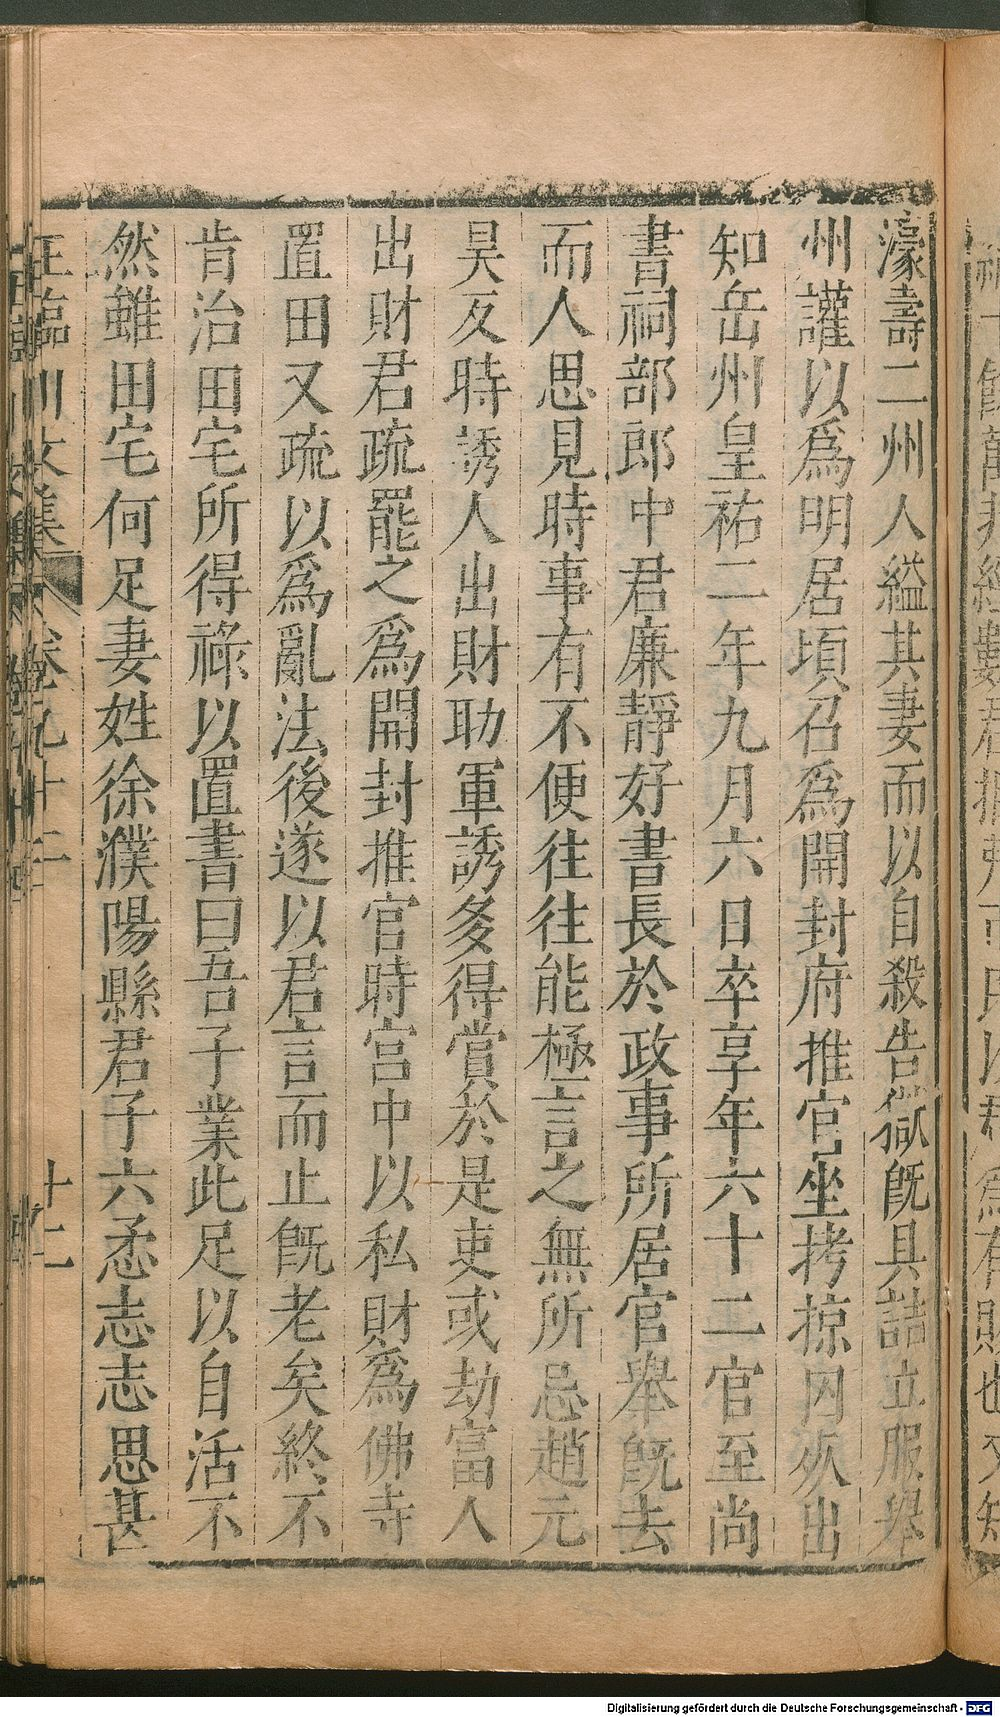 濠壽二州人縊其妻而以自殺告獄旣具詰立服舉
州讙以爲明居頃召爲開封府推官坐拷掠囚死出
知岳州皇祐二年九月六日卒享年六十二官至尚
書祠部郎中君廉靜好書長於政事所居官舉旣去
而人思見時事有不便往往能極言之無所忌趙元
昊反時誘人出財助軍誘多得賞於是吏或劫富人
出財君疏罷之爲開封推官時宫中以私財爲佛寺
置田又疏以爲亂法後遂以君言而止旣老矣終不
肯治田宅所得祿以置書曰吾子業此足以自活不
然雖田宅何足妻姓徐濮陽縣君子六柔志志思甚
王臨川文集 卷九十二 十二
Digitalisierung gefördert durch die Deutsche Forschungsgemeinschaft - DFG